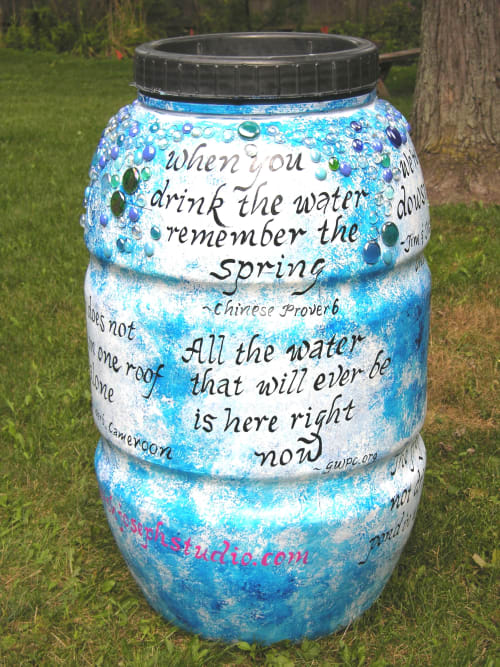 when you
drink the water
remember the
spring
~Chinese Proverb
All the water
that will ever be
is here right
now
~GWPC.org
does not
one roof
Cameroon
not